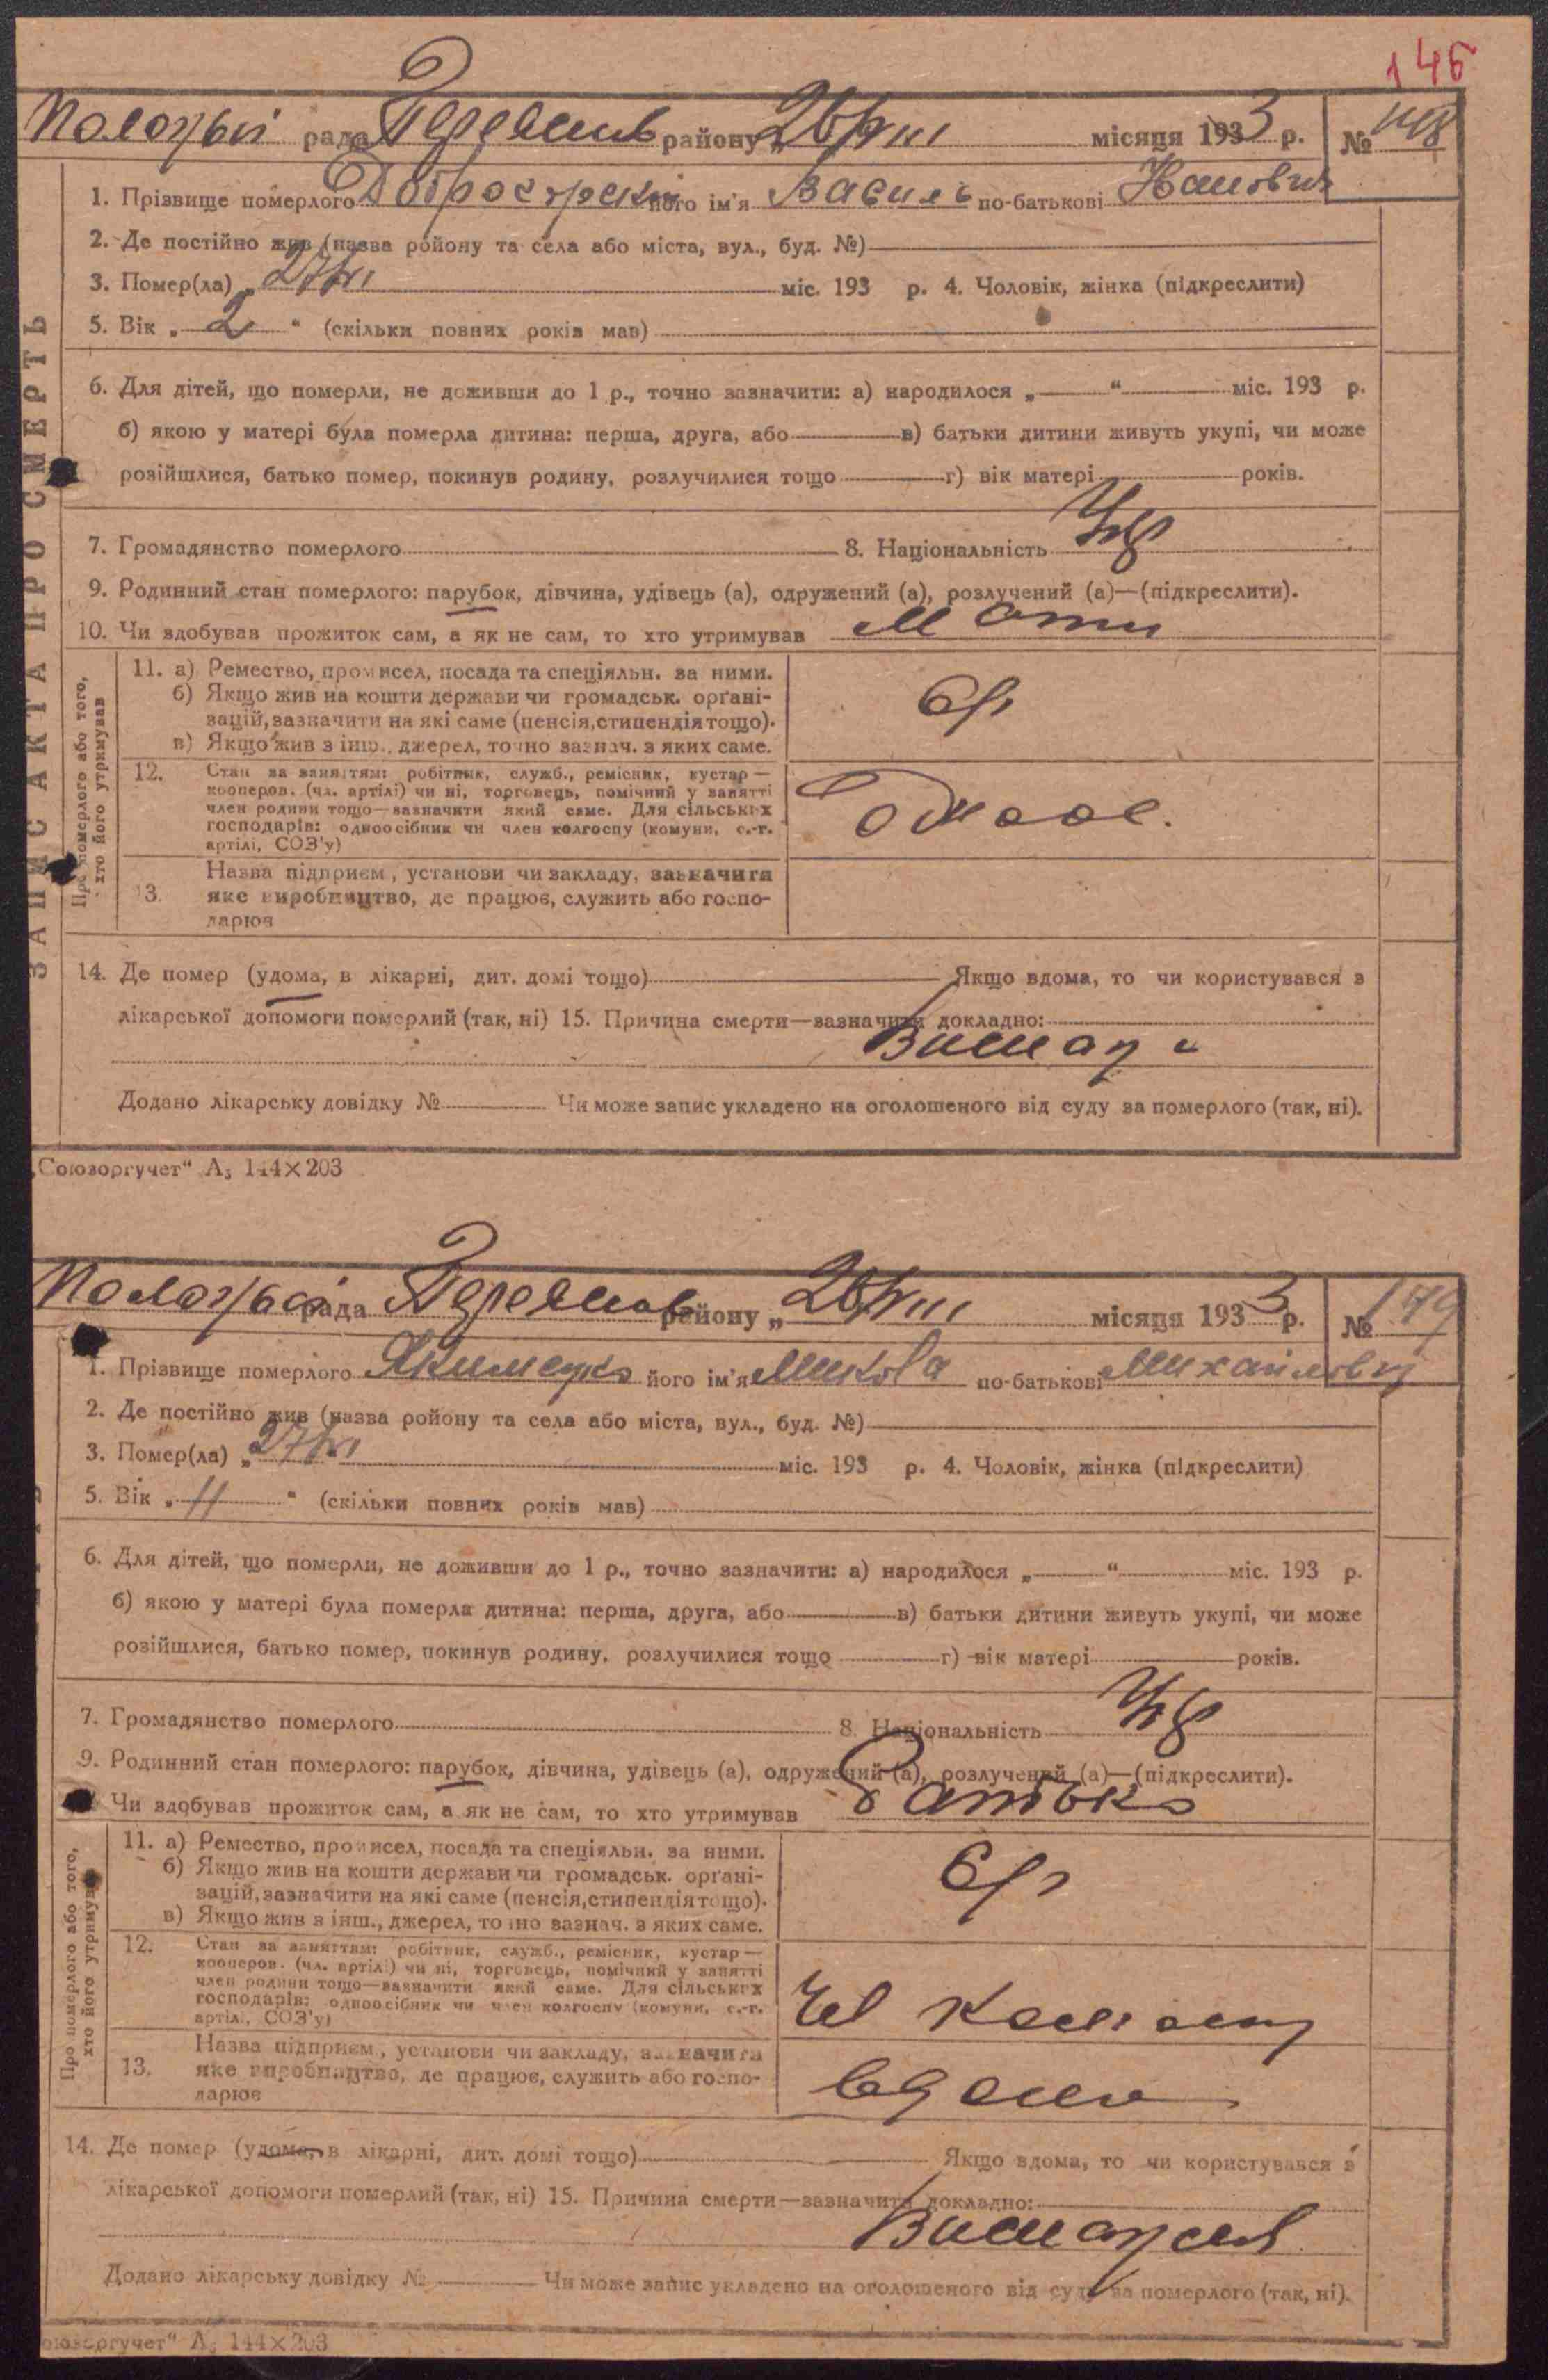 146
рада району місяця 1933 р. № 148
1. Прізвище померлого його ім'я Василь по-батькові
2. Де постійно жив (назва ройону та села або міста, вул., буд. №)
3. Помер(ла) „ 27/VI міс. 193 р. 4. Чоловік, жінка (підкреслити)
5. Вік „ 2 “ (скільки повних років мав)
6. Для дітей, що померли, не доживши до 1 р., точно зазначити: а) народилося „ “ міс. 193 р.
б) якою у матері була померла дитина: перша, друга, або в) батьки дитини живуть укупі, чи може
розійшлися, батько помер, покинув родину, розлучилися тощо г) вік матері років.
7. Громадянство померлого 8. Національність Укр
9. Родинний стан померлого: парубок, дівчина, удівець (а), одружений (а), розлучений (а)—(підкреслити).
10. Чи здобував прожиток сам, а як не сам, то хто утримував Мати
ЗАПИС АКТА ПРО СМЕРТЬ
Про померлого або того, хто його утримував
11. а) Ремество, промисел, посада та спеціяльн. за ними.
б) Якщо жив на кошти держави чи громадськ. орґані-
зацій, зазначити на які саме (пенсія, стипендія тощо).
в) Якщо жив з інш., джерел, точно зазнач. з яких саме.
12. Стан за заняттям: робітник, служб., ремісник, кустар —
кооперов. (чл. артілі) чи ні, торговець, помічний у занятті
член родини тощо—зазначити який саме. Для сільських
господарів: одноосібник чи член колгоспу (комуни, с.-г.
артілі, СОЗ'у)
13. Назва підприєм., установи чи закладу, зазначити
яке виробництво, де працює, служить або госпо-
дарює
14. Де помер (удома, в лікарні, дит. домі тощо) Якщо вдома, то чи користувався з
лікарської допомоги померлий (так, ні) 15. Причина смерти—зазначити докладно:
Додано лікарську довідку № Чи може запис укладено на оголошеного від суду за померлого (так, ні).
„Союзоргучет“ А₅ 144×203
рада району „ місяця 1933 р. № 149
1. Прізвище померлого Якименко його ім'я Микола по-батькові Михайлович
2. Де постійно жив (назва ройону та села або міста, вул., буд. №)
3. Помер(ла) „ 27/VI міс. 193 р. 4. Чоловік, жінка (підкреслити)
5. Вік „ 11 “ (скільки повних років мав)
6. Для дітей, що померли, не доживши до 1 р., точно зазначити: а) народилося „ “ міс. 193 р.
б) якою у матері була померла дитина: перша, друга, або в) батьки дитини живуть укупі, чи може
розійшлися, батько помер, покинув родину, розлучилися тощо г) вік матері років.
7. Громадянство померлого 8. Національність Укр
9. Родинний стан померлого: парубок, дівчина, удівець (а), одружений (а), розлучений (а)—(підкреслити).
Чи здобував прожиток сам, а як не сам, то хто утримував Батько
Про померлого або того, хто його утримував
11. а) Ремество, промисел, посада та спеціяльн. за ними.
б) Якщо жив на кошти держави чи громадськ. орґані-
зацій, зазначити на які саме (пенсія, стипендія тощо).
в) Якщо жив з інш., джерел, точно зазнач. з яких саме.
12. Стан за заняттям: робітник, служб., ремісник, кустар —
кооперов. (чл. артілі) чи ні, торговець, помічний у занятті
член родини тощо—зазначити який саме. Для сільських
господарів: одноосібник чи член колгоспу (комуни, с.-г.
артілі, СОЗ'у)
Чл Колгоспу
13. Назва підприєм., установи чи закладу, зазначити
яке виробництво, де працює, служить або госпо-
дарює
вдома
14. Де помер (удома, в лікарні, дит. домі тощо) Якщо вдома, то чи користувався з
лікарської допомоги померлий (так, ні) 15. Причина смерти—зазначити докладно:
Додано лікарську довідку № Чи може запис укладено на оголошеного від суду за померлого (так, ні).
оюзоргучет“ А₅ 144×203